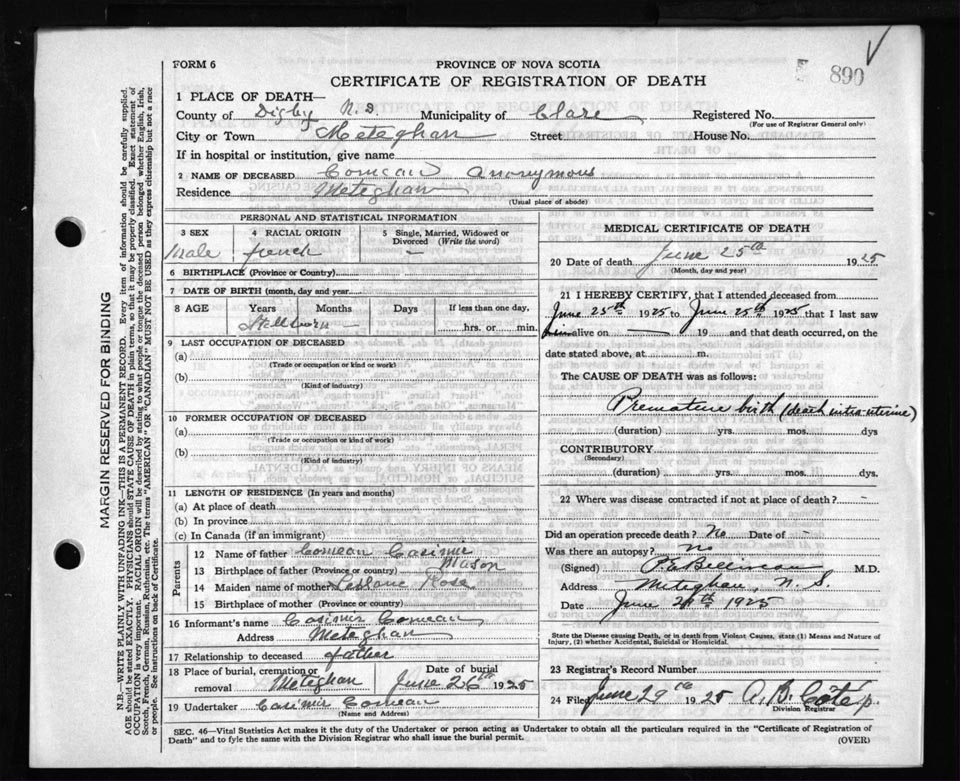 FORM 6
PROVINCE OF NOVA SCOTIA
CERTIFICATE OF REGISTRATION OF DEATH
890
1 PLACE OF DEATH—
County of Digby N.S. Municipality of Clare Registered No.
(For use of Registrar General only)
City or Town Meteghan Street House No.
If in hospital or institution, give name
2 NAME OF DECEASED Comeau Anonymous
Residence Meteghan
(Usual place of abode)
PERSONAL AND STATISTICAL INFORMATION
3 SEX 4 RACIAL ORIGIN 5 Single, Married, Widowed or Divorced (Write the word)
Male french —
6 BIRTHPLACE (Province or Country)
7 DATE OF BIRTH (month, day and year)
8 AGE Years Months Days If less than one day,
Stillborn hrs. or min.
9 LAST OCCUPATION OF DECEASED
(a)
(Trade or occupation or kind or work)
(b)
(Kind of industry)
10 FORMER OCCUPATION OF DECEASED
(a)
(Trade or occupation or kind of work)
(b)
(Kind of industry)
11 LENGTH OF RESIDENCE (In years and months)
(a) At place of death
(b) In province
(c) In Canada (if an immigrant)
Parents
12 Name of father Comeau Casimir
13 Birthplace of father (Province or country) Mason
14 Maiden name of mother Leblanc Rose
15 Birthplace of mother (Province or country)
16 Informant's name Casimir Comeau
Address Meteghan
17 Relationship to deceased father
18 Place of burial, cremation or removal Meteghan Date of burial June 26th 1925
19 Undertaker Casimir Comeau
(Name and Address)
MEDICAL CERTIFICATE OF DEATH
20 Date of death June 25th 1925
(Month, day and year)
21 I HEREBY CERTIFY, that I attended deceased from
June 25th 1925 to June 25th 1925 that I last saw
him alive on — 19 and that death occurred, on the
date stated above, at m.
The CAUSE OF DEATH was as follows:
Premature birth (death intra-uterine)
(duration) yrs. mos. dys
CONTRIBUTORY
(Secondary)
(duration) yrs. mos. dys.
22 Where was disease contracted if not at place of death?
Did an operation precede death? No Date of -
Was there an autopsy? no
(Signed) M.D.
Address Meteghan, N.S.
Date June 1925
State the Disease causing Death, or in death from Violent Causes, state (1) Means and Nature of Injury, (2) whether Accidental, Suicidal or Homicidal.
23 Registrar's Record Number
24 Filed June 29th 1925 A. B. Côté p.
Division Registrar
SEC. 46—Vital Statistics Act makes it the duty of the Undertaker or person acting as Undertaker to obtain all the particulars required in the "Certificate of Registration of
Death" and to fyle the same with the Division Registrar who shall issue the burial permit.
(OVER)
MARGIN RESERVED FOR BINDING
N.B.—WRITE PLAINLY WITH UNFADING INK—THIS IS A PERMANENT RECORD. Every item of information should be carefully supplied.
AGE should be stated EXACTLY. PHYSICIANS should STATE CAUSE OF DEATH in plain terms, so that it may be properly classified. Exact statement of
OCCUPATION is very important. RACIAL ORIGIN will be described by stating to what people or tongue the deceased person belonged, whether English, Irish,
Scotch, French, German, Russian, Ruthenian, etc. The terms "AMERICAN" OR "CANADIAN" MUST NOT BE USED as they express citizenship but not a race
or people. See instructions on back of Certificate.